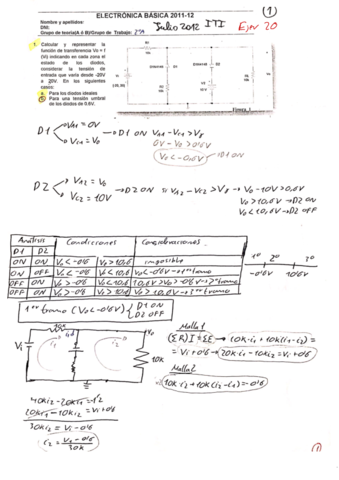 ELECTRÓNICA BÁSICA 2011-12
(1)
Nombre y apellidos:
DNI:
Grupo de teoría(A ó B)/Grupo de Trabajo:
Julio 2012 ITI
Ejer 20
1. Calcular y representar la
función de transferencia Vo = f
(Vi) indicando en cada zona el
estado de los diodos,
considerar la tensión de
entrada que varía desde -20V
a 20V. En los siguientes
casos:
a. Para los diodos ideales
b. Para una tensión umbral
de los diodos de 0.6V.
D1 VA1 = 0V
VC1 = Vo
→ D1 ON VA1 - VC1 > Vγ
0V - Vo > 0'6V
Vo < -0'6V → D1 ON
D2 VA2 = Vo
VC2 = 10V
→ D2 ON si VA2 - VC2 > Vγ → Vo - 10V > 0,6V
Vo > 10,6V → D2 ON
Vo < 10,6V → D2 OFF
Análisis Condiciones Consideraciones
D1 D2
ON ON Vo < -0'6 Vo > 10,6 imposible
ON OFF Vo < -0'6 Vo < 10,6 Vo < -0'6V → 1er tramo
OFF OFF Vo > -0'6 Vo < 10,6 10,6V > Vo > -0'6V → 2º tramo
OFF ON Vo > -0'6 Vo > 10,6 Vo > 10,6V → 3er tramo
1º 2º 3º
-0'6V 10'6V
1er tramo (Vo < -0'6V) D1 ON
D2 OFF
10k
Vi
i1
i2
Vo
10k
Malla 1
(ΣR) I = ΣE → 10k·i1 + 10k(i1 - i2) =
= Vi + 0'6 → 20k·i1 - 10k i2 = Vi + 0'6
Malla 2
10k·i2 + 10k(i2 - i1) = -0'6
40k i2 - 20k i1 = -1'2
20k i1 - 10k i2 = Vi + 0'6
30k i2 = Vi - 0'6
i2 = Vi - 0'6 / 30k